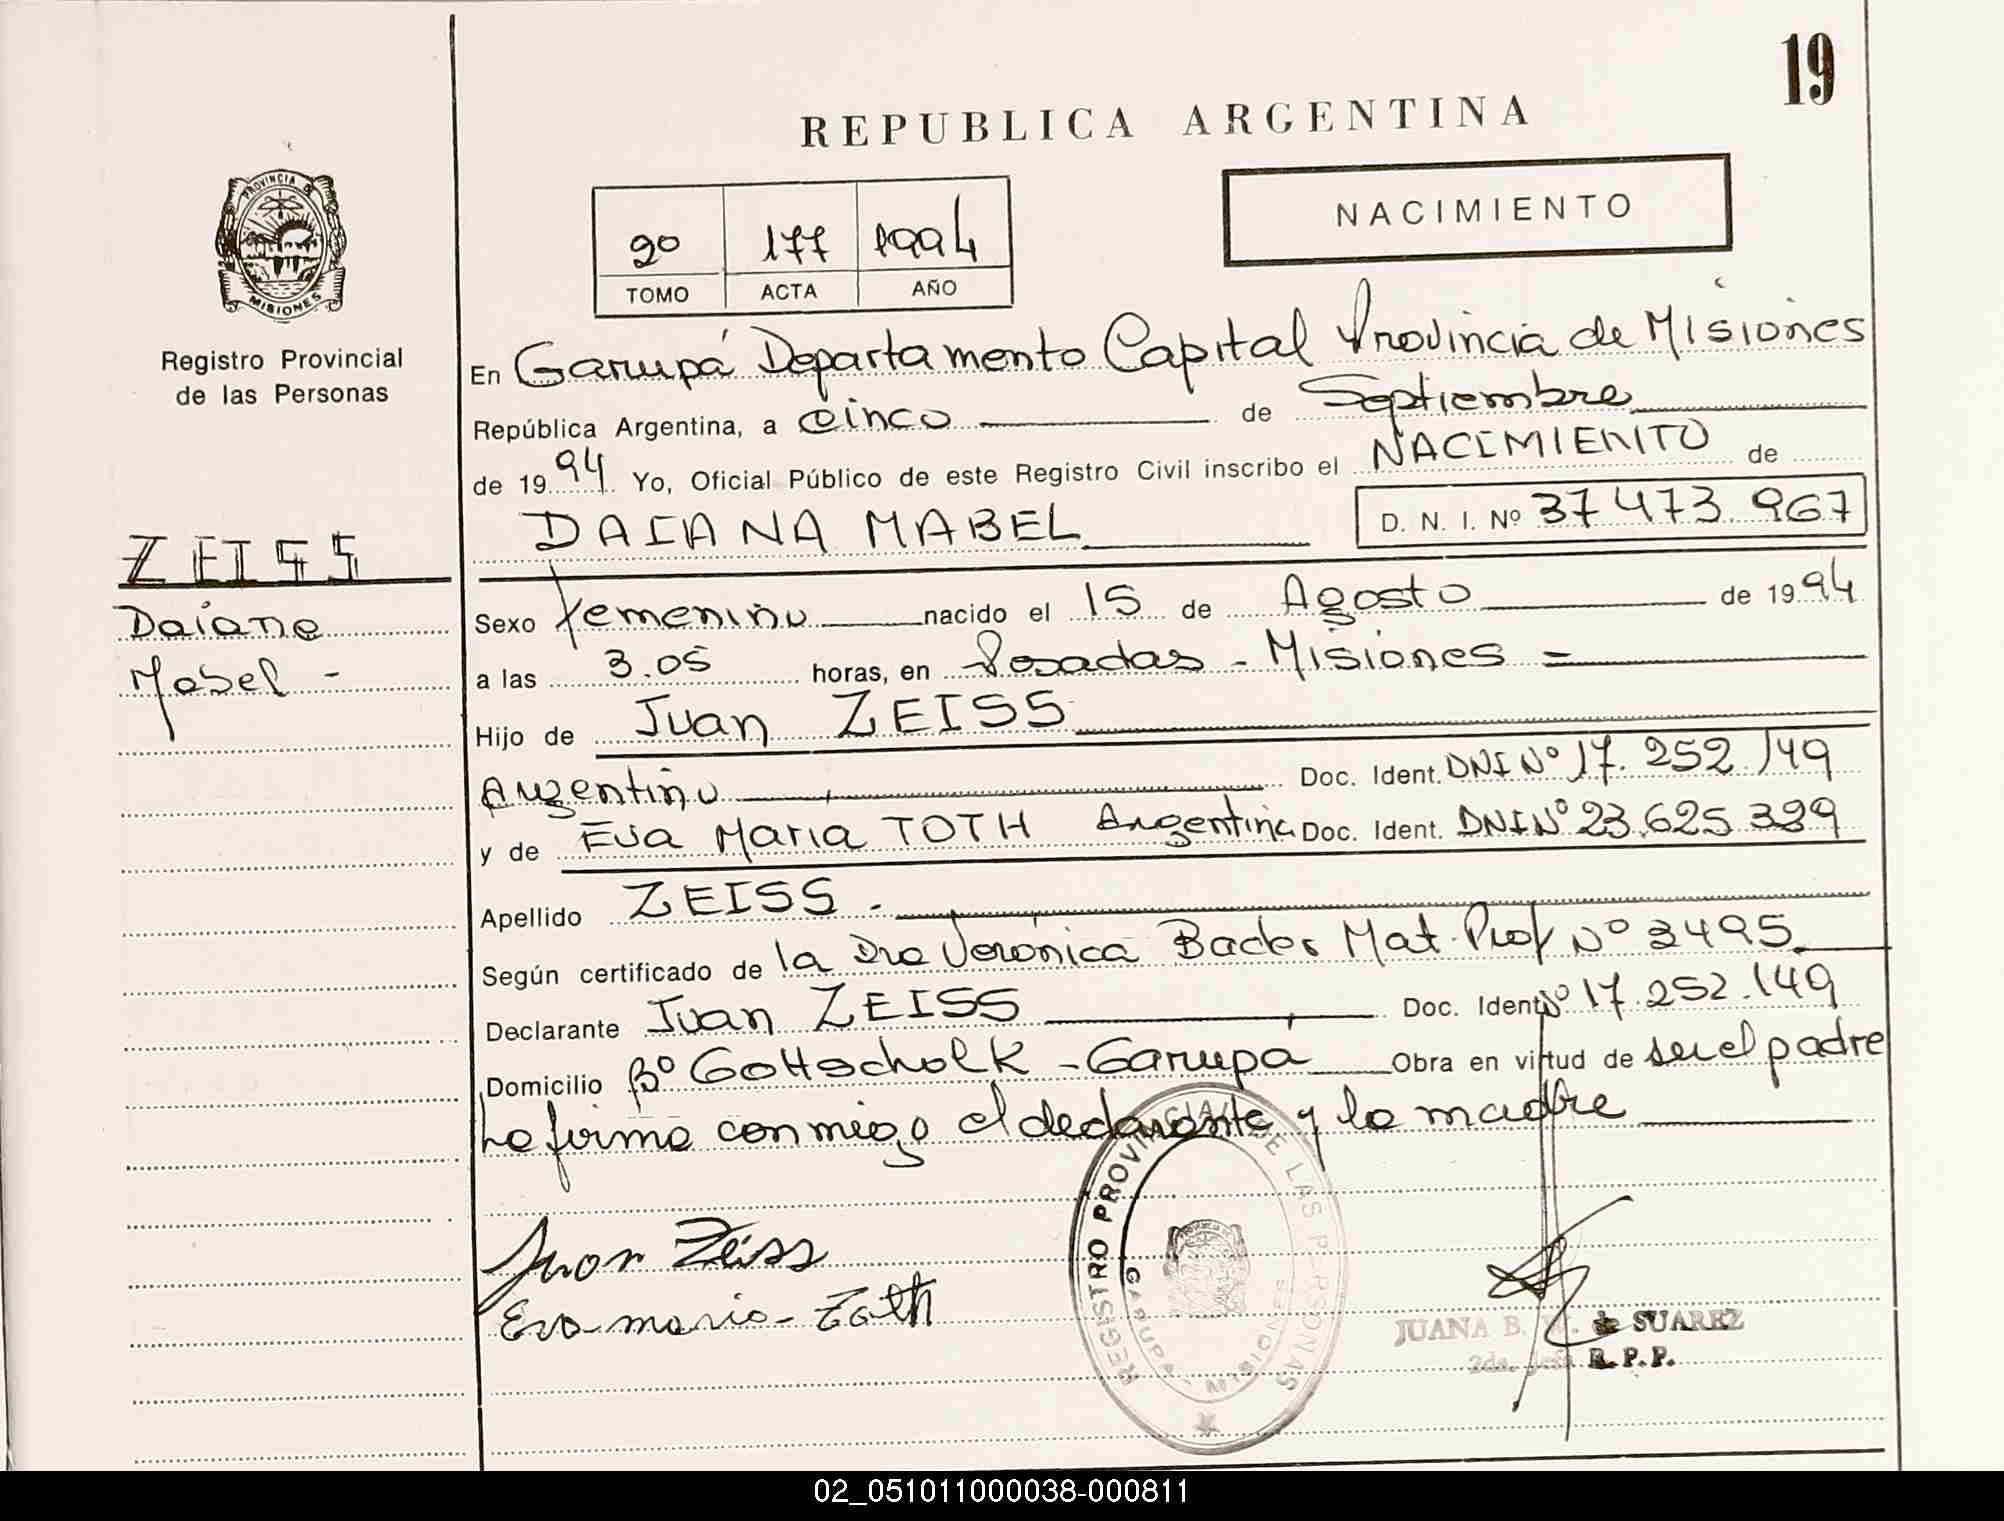 19
REPUBLICA ARGENTINA
NACIMIENTO
2º 177 1994
TOMO ACTA AÑO
PROVINCIA DE MISIONES
Registro Provincial
de las Personas
En Garupá Departamento Capital Provincia de Misiones
República Argentina, a cinco de Septiembre
de 1994 Yo, Oficial Público de este Registro Civil inscribo el NACIMIENTO de
DAIANA MABEL D. N. I. Nº 37 473.967
ZEISS
Daiana
Mabel -
Sexo femenino nacido el 15 de Agosto de 1994
a las 3.05 horas, en Posadas - Misiones =
Hijo de Juan ZEISS
Argentino Doc. Ident. DNI Nº 17.252.149
y de Eva Maria TOTH Argentina Doc. Ident. DNI Nº 23.625.389
Apellido ZEISS.
Según certificado de la Dra Veronica Mat. Prof Nº 3495.
Declarante Juan ZEISS Doc. Ident Nº 17.252.149
Domicilio Bº Gottschalk - Garupa Obra en virtud de ser el padre
La firma conmigo el declarante y la madre
Juan Zeiss
Eva maria Toth
REGISTRO PROVINCIAL DE LAS PERSONAS
GARUPA MISIONES
JUANA B. de SUAREZ
2da. Jefa R. P. P.
02_051011000038-000811